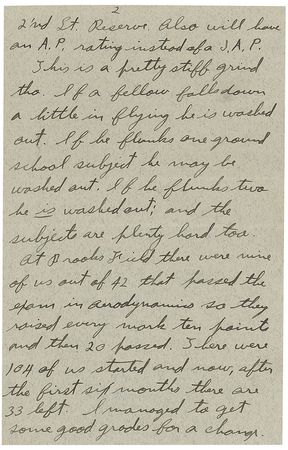 2
2'nd Lt. Reserve. Also will have
an A.P. rating instead of a J.A.P.
This is a pretty stiff grind
tho. If a fellow falls down
a little in flying he is washed
out. If he flunks one ground
school subject he may be
washed out. If he flunks two
he is washed out; and the
subjects are plenty hard too.
At Brooks Field there were nine
of us out of 42 that passed the
exam in aerodynamics so they
raised every mark ten point
and then 20 passed. There were
104 of us started and now, after
the first six months there are
33 left. I managed to get
some good grades for a change.